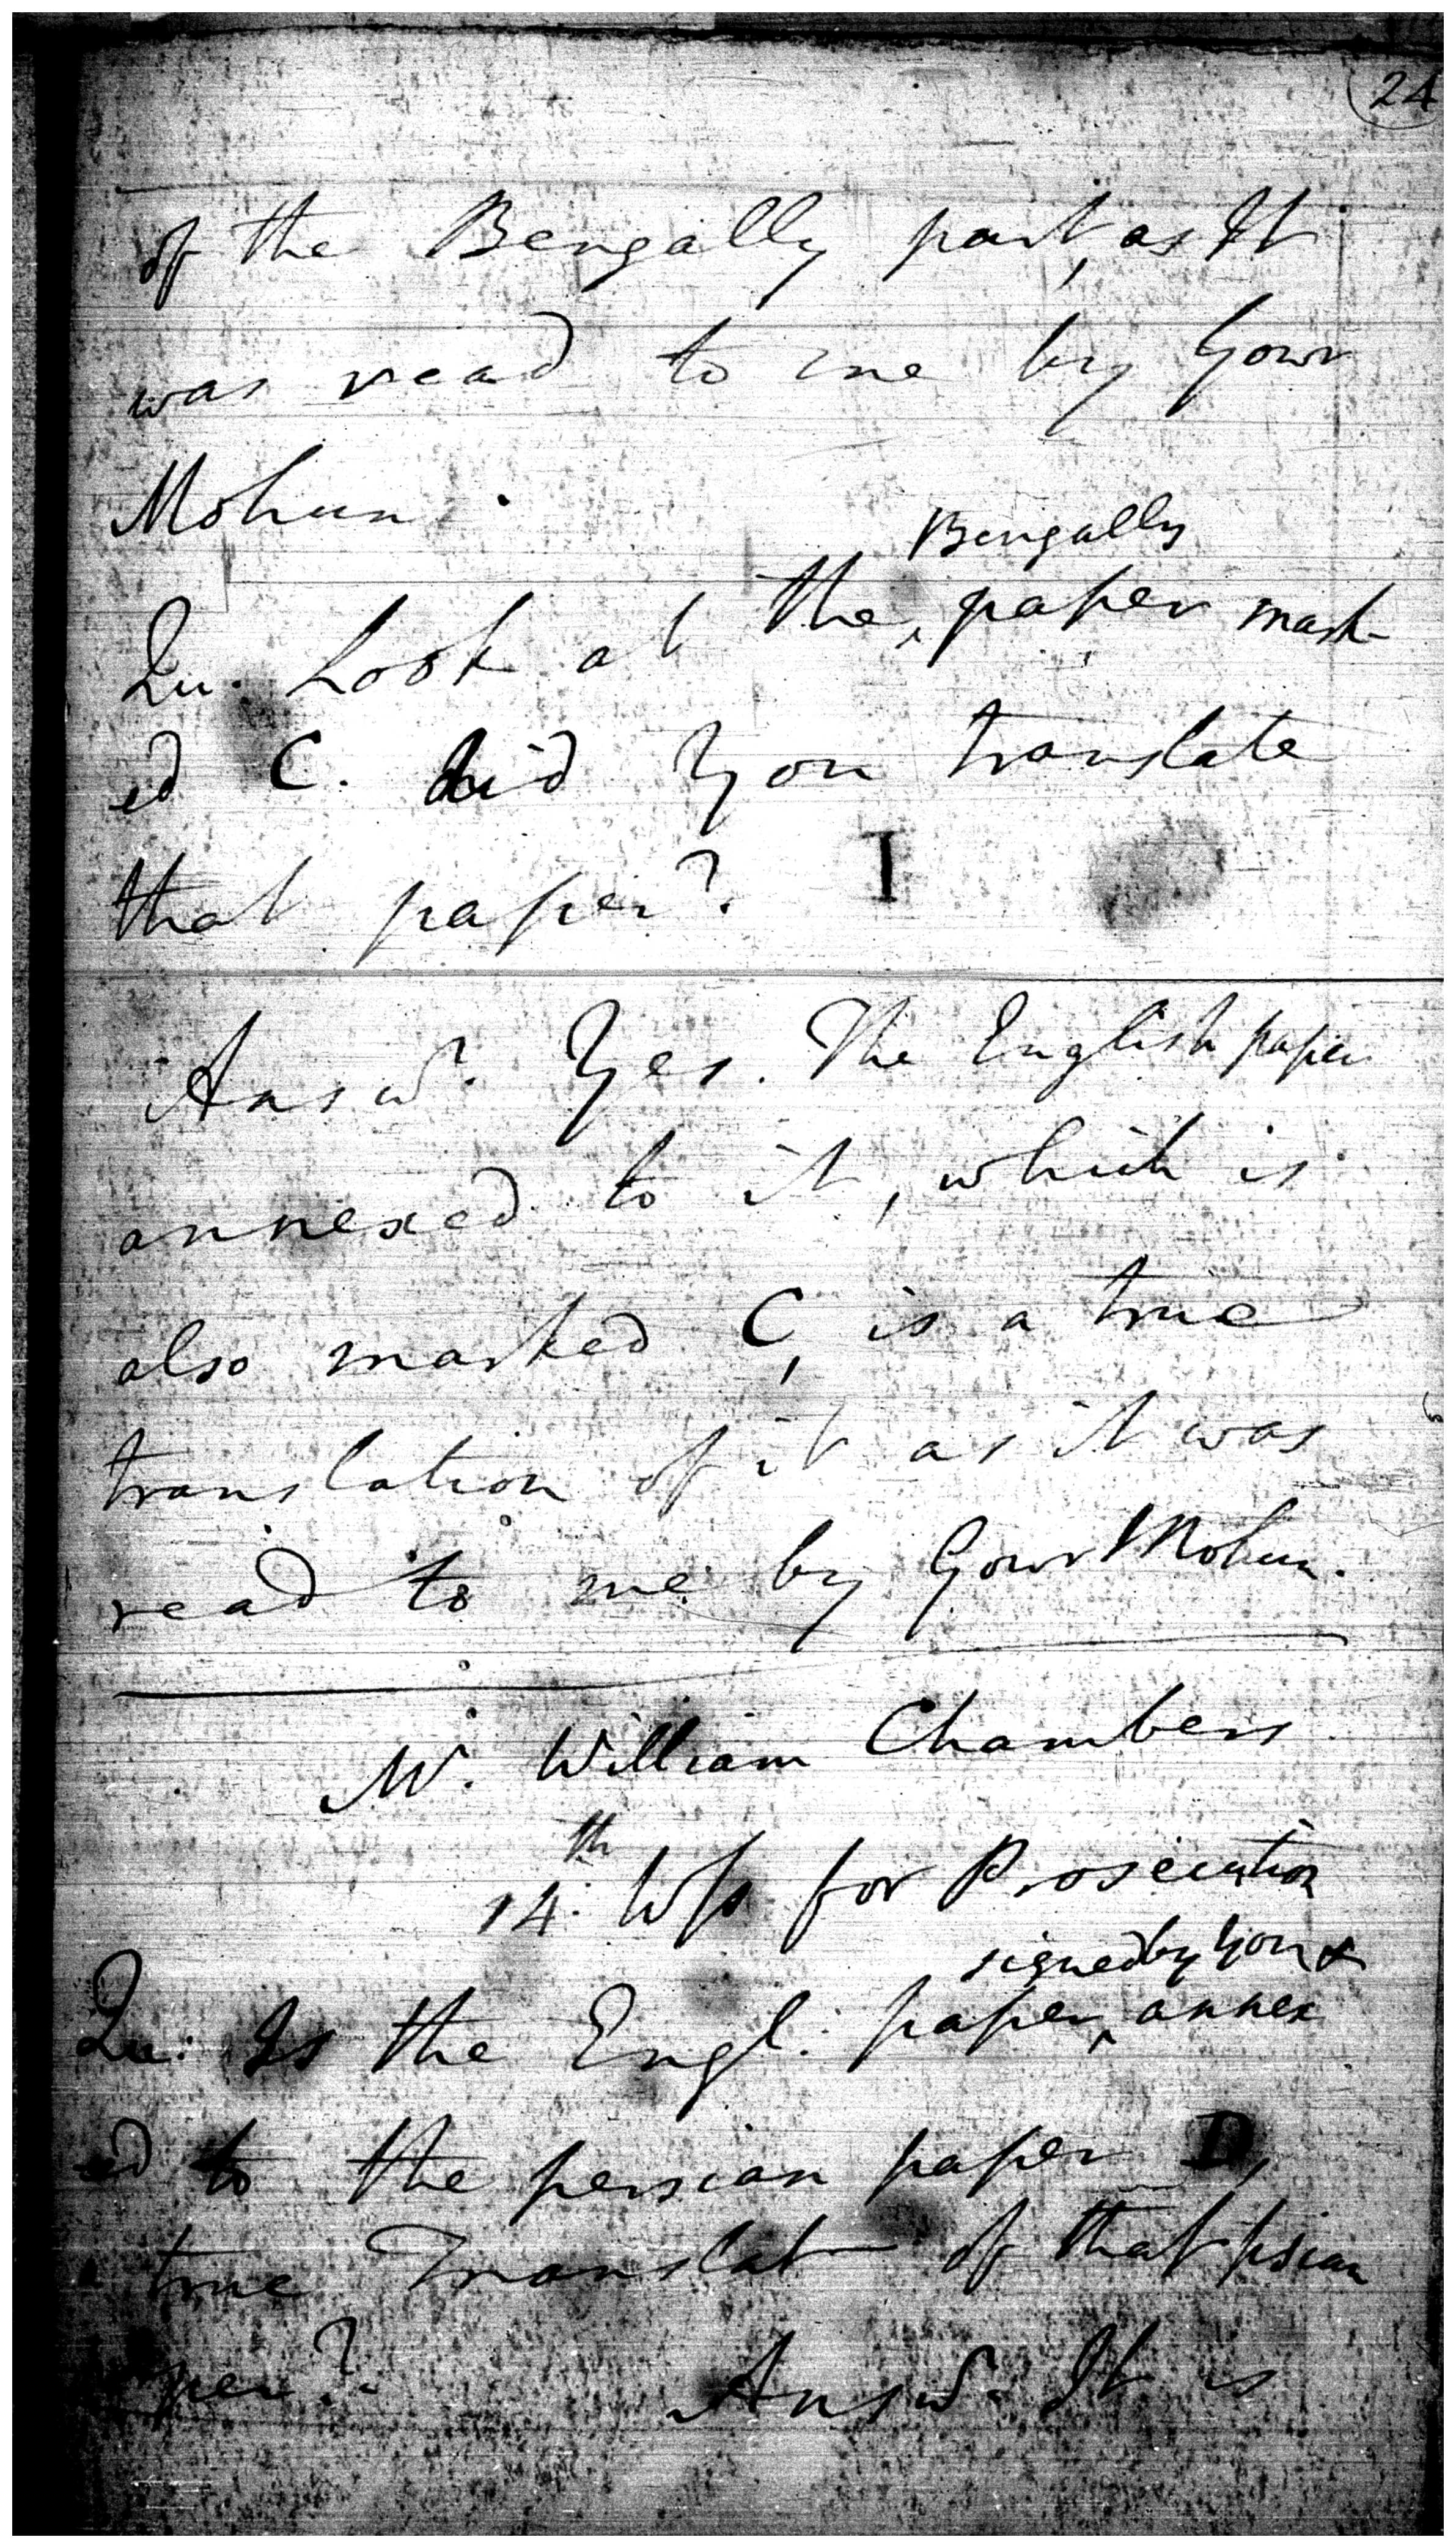 24
of the Bengally part, as It
was read to me by Gowr
Mohun.
Bengally
Qu. Look at the ‸ paper mark-
ed C. did You translate
that paper? I
Answr. Yes. The English paper
annexed to it, which is
also marked C, is a true
translation of it as it was
read to me by Gowr Mohun.
Mr. William Chambers
14th. Wss for Prosecution
signed by You &
Qu: Is the Engl. paper ‸ annex
ed to the persian paper D,
a true Translat of that psian
per? Answr. It is